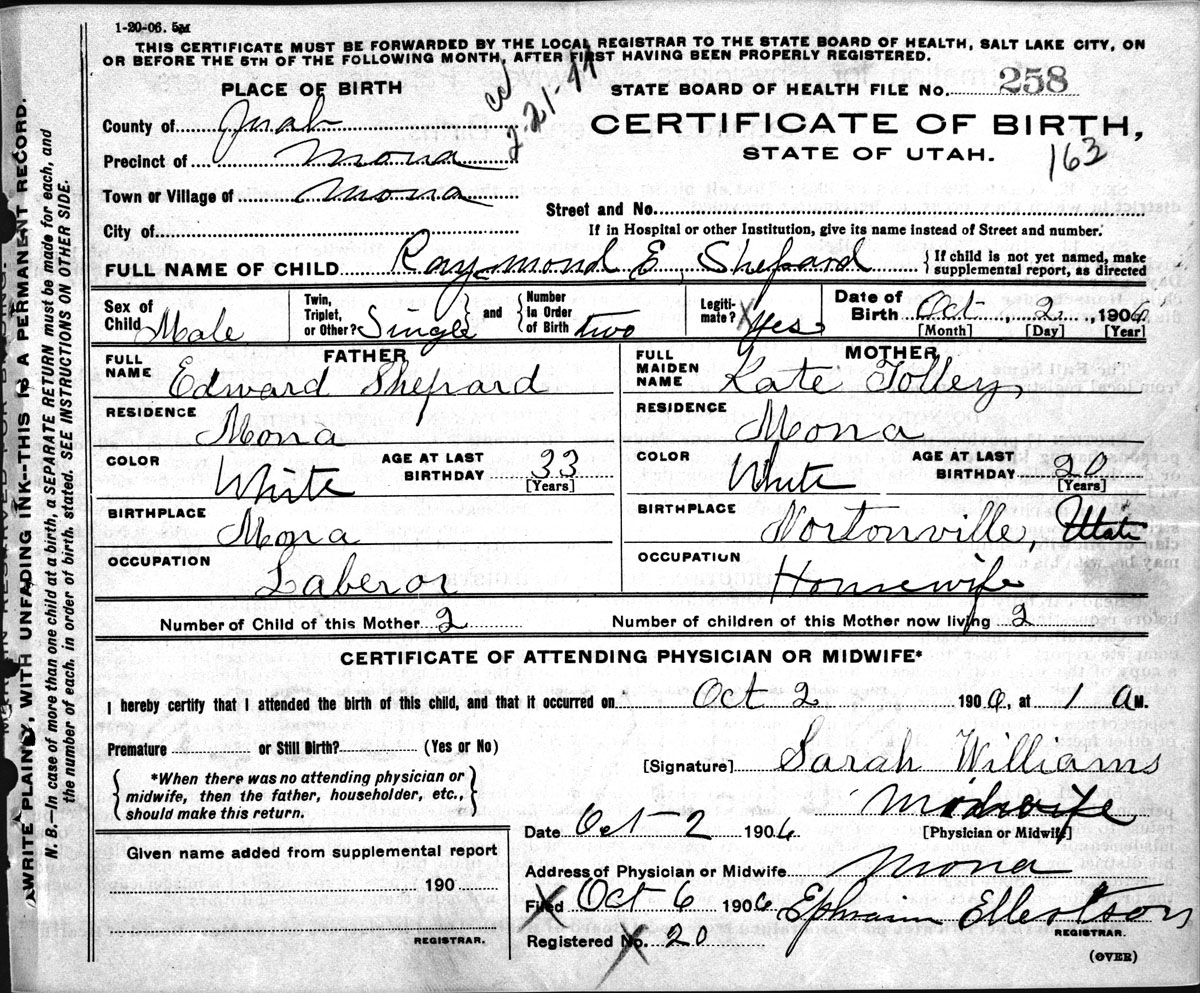 1-20-06. 5M
THIS CERTIFICATE MUST BE FORWARDED BY THE LOCAL REGISTRAR TO THE STATE BOARD OF HEALTH, SALT LAKE CITY, ON
OR BEFORE THE 5TH OF THE FOLLOWING MONTH, AFTER FIRST HAVING BEEN PROPERLY REGISTERED.
2-21-44
PLACE OF BIRTH
STATE BOARD OF HEALTH FILE No. 258
County of Juab
CERTIFICATE OF BIRTH,
Precinct of Mona
STATE OF UTAH.
163
Town or Village of Mona
Street and No.
City of
If in Hospital or other Institution, give its name instead of Street and number.
FULL NAME OF CHILD Raymond E. Shepard
{ If child is not yet named, make
supplemental report, as directed
Sex of Child Male
Twin, Triplet, or Other? Single } and { Number In Order of Birth two
Legiti-mate? X Yes
Date of Birth Oct 2, 1906
[Month] [Day] [Year]
FATHER
FULL NAME Edward Shepard
RESIDENCE
Mona
COLOR White AGE AT LAST BIRTHDAY 33
[Years]
BIRTHPLACE
Mona
OCCUPATION
Laberor
MOTHER
FULL MAIDEN NAME Kate Tolley,
RESIDENCE
Mona
COLOR White AGE AT LAST BIRTHDAY 20
[Years]
BIRTHPLACE
Nortonville, Utah
OCCUPATION
Housewife
Number of Child of this Mother 2
Number of children of this Mother now living 2
CERTIFICATE OF ATTENDING PHYSICIAN OR MIDWIFE*
I hereby certify that I attended the birth of this child, and that it occurred on Oct 2 1906, at 1 A M.
Premature or Still Birth? (Yes or No)
[Signature] Sarah Williams
{ *When there was no attending physician or
midwife, then the father, householder, etc.,
should make this return. }
Midwife
Date Oct-2 1906
[Physician or Midwife]
Given name added from supplemental report
190
REGISTRAR.
Address of Physician or Midwife Mona
Filed Oct 6 1906 Ephraim Ellertson
REGISTRAR.
Registered No. 20
(OVER)
WRITE PLAINLY, WITH UNFADING INK--THIS IS A PERMANENT RECORD.
N. B.—In case of more than one child at a birth, a SEPARATE RETURN must be made for each, and
the number of each, in order of birth, stated. SEE INSTRUCTIONS ON OTHER SIDE.